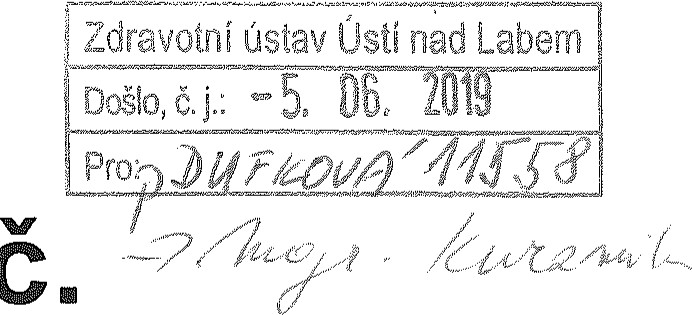 Zdravotní ústav Ústí nad Labem
Došlo, č. j.: -5. 06. 2019
Pro: p DUFKOVÁ 11558
Č. → Mgr.